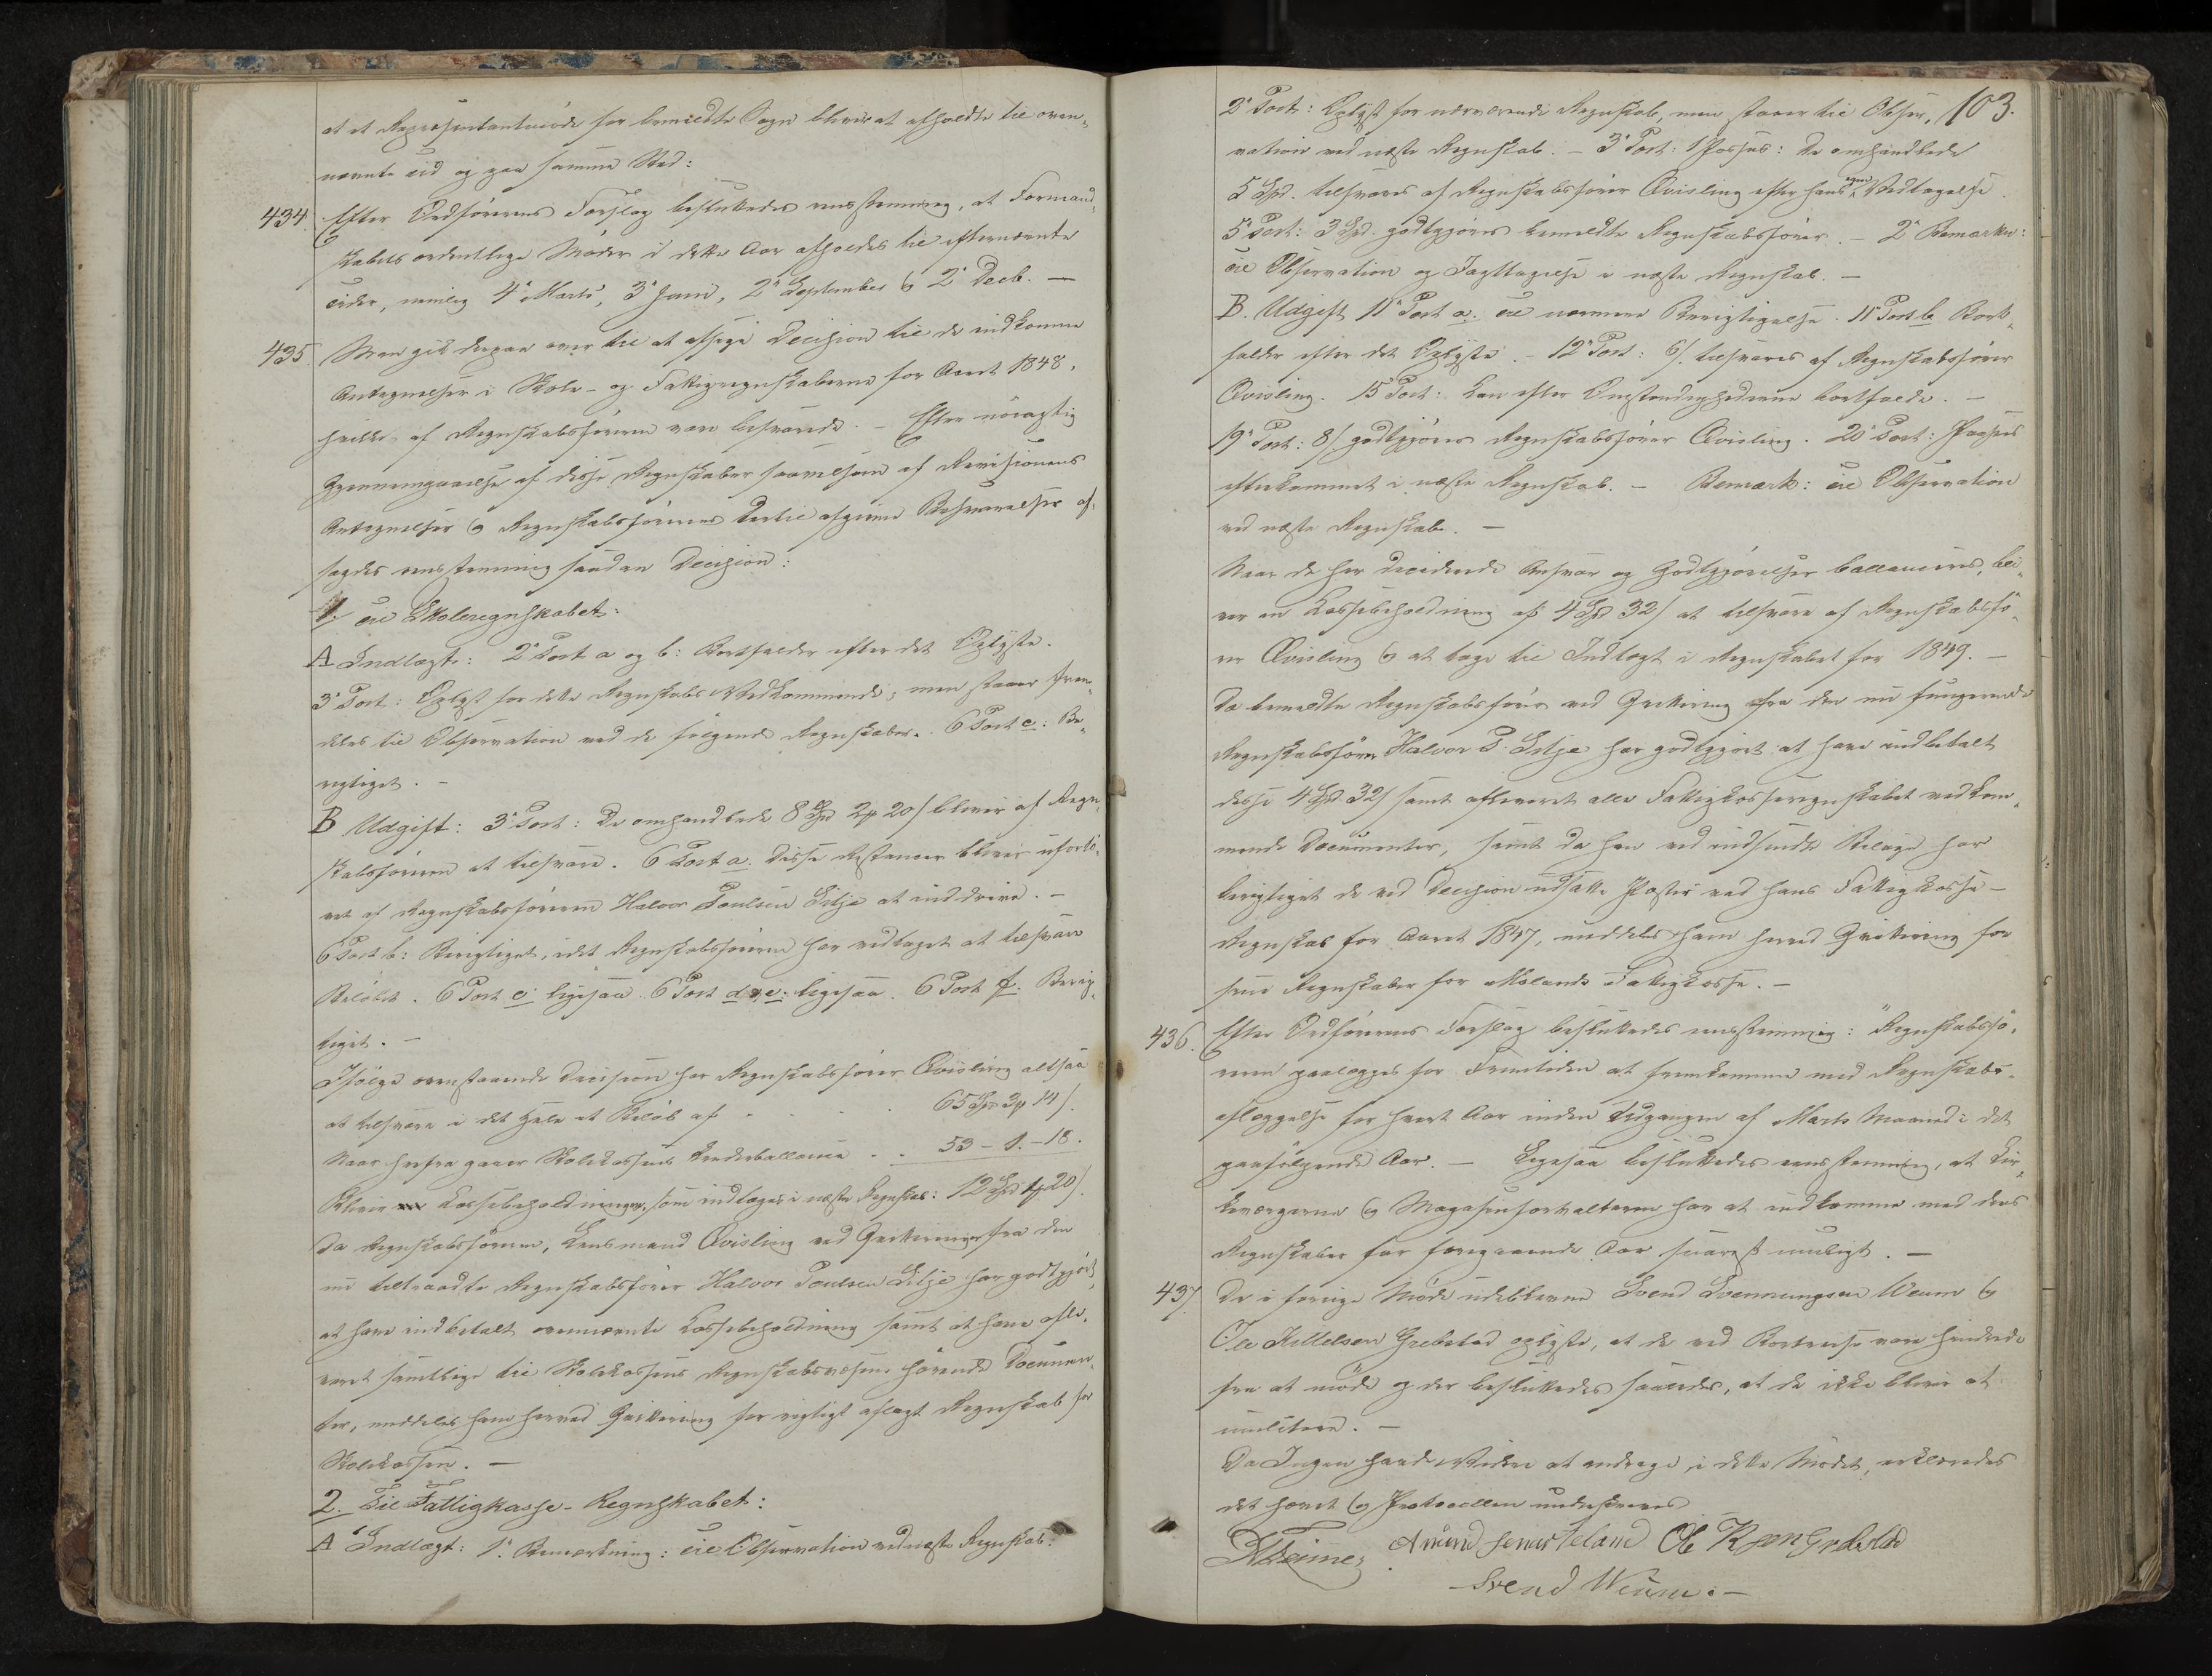 at et Repræsentantmøde for bemeldte Sogn bliver at afholdte til oven-
nævnte Tid og paa samme Sted:
434. Efter Ordførerens Forslag besluttedes eenstemmig, at Formand-
skabets ordentlige Møder i dette Aar afholdes til efternævnte
Tider, nemlig 4de Marts, 3de Juni, 2den September og 2den Decb. —
435. Man gik derpaa over til at afsige Decision til de indkomne
Antegnelser i Skole- og Fattigregnskaberne for Aaret 1848,
hvilke af Regnskabsføreren vare besvarede. — Efter nøiagtig
Gjennemgaaelse af disse Regnskaber saavelsom af Revisionens
Antegnelser og Regnskabsførerens dertil afgivne Besvarelser af-
sagdes eenstemmig saadan Decision:
1. Til Skoleregnskabet:
A Indtægt: 2den Post a og b: Bortfalder efter det Oplyste.
3die Post: Oplyst for dette Regnskabs Vedkommende; men staaer frem-
deles til Observation ved de følgende Regnskaber. 6 Post c: Be-
rigtiget. —
B Udgift: 3die Post: De omhandlede 8 Spd 2 # 20 s bliver af Regn-
skabsføreren at tilsvare. 6 Post a. Disse Restancer bliver ufortø-
vet af Regnskabsføreren Halvor Poulsen Lilje at inddrive. —
6 Post b: Berigtiget, idet Regnskabsføreren har vedtaget at tilsvare
Beløbet. 6 Post c: ligesaa. 6 Post d og e: ligesaa. 6 Post f. Berig-
tiget. —
Ifølge ovenstaaende Decision har Regnskabsfører Qvisling altsaa
at tilsvare i det Hele et Beløb af . . . . 65 Spd 3 # 14 s.
Naar herfra gaaer Skolekassens Underballance . . 53 – 1. – 18.
Bliver Kassebeholdningen, som indtages i næste Regnskab: 12 Spd 1 # 20 s.
Da Regnskabsføreren, Lensmand Qvisling ved Qvittering fra den
nu tiltraadte Regnskabsfører Halvor Poulsen Lilje har godtgjort
at have indbetalt ovennævnte Kassebeholdning samt at have afle-
veret samtlige til Skolekassens Regnskabsvæsen hørende Documen-
ter, meddeles ham herved Qvittering for rigtigt aflagt Regnskab for
Skolekassen. —
2. Til Fattigkasse-Regnskabet:
A Indtægt: 1. Bemærkning: til Observation ved næste Regnskab.
103.
2den Post: Oplyst for nærværende Regnskab, men staaer til Obser-
vation ved næste Regnskab. — 3die Post: 1 Passus: De omhandlede
5 Spd. tilsvares af Regnskabsfører Qvisling efter hans egen Vedtagelse.
5te Post: 3 Spd. godtgjøres bemeldte Regnskabsfører. — 2den Bemærkn:
til Observation og Iagttagelse i næste Regnskab. —
B. Udgift 11te Post a: til nærmere Berigtigelse. 11te Post b Bort-
falder efter det Oplyste. — 12te Post: 6 s. tilsvares af Regnskabsfører
Qvisling. 15 Post: Kan efter Omstændighederne bortfalde. —
19de Post: 8 s. godtgjøres Regnskabsfører Qvisling. 20de Post: Paasees
efterkommet i næste Regnskab. — Bemærk: til Observation
ved næste Regnskab. —
Naar de her deciderede Ansvar og Godtgjørelser ballanceres, bli-
ver en Kassebeholdning af 4 Spd 32 s at tilsvare af Regnskabsfø-
rer Qvisling og at tage til Indtægt i Regnskabet for 1849. —
Da bemeldte Regnskabsfører ved Qvittering fra den nu fungerende
Regnskabsfører Halvor P. Lilje har godtgjort at have indbetalt
disse 4 Spd 32 s samt afleveret alle Fattigkasseregnskabet vedkom-
mende Documenter, samt da han ved indsendte Bilage har
berigtiget de ved Decision udsatte Poster ved hans Fattigkasse-
Regnskab for Aaret 1847, meddeles ham herved Qvittering for
sine Regnskaber for Molands Fattigkasse. —
436. Efter Ordførerens Forslag besluttedes eenstemmig: "Regnskabsfø-
reren paalægges for Fremtiden at fremkomme med Regnskabs-
aflæggelse for hvert Aar inden Udgangen af Marts Maaned i det
paafølgende Aar. — Ligesaa besluttedes eenstemmig, at Kir-
keværgerne og Magasinforvalteren har at indkomme med deres
Regnskaber for foregaaende Aar snarest muligt. —
437. De i forrige Møde udeblevne Svend Svennungsen Weum og
Ole Kittelsen Grebstad oplyste, at de ved Bortreise vare hindrede
fra at møde og der besluttedes saaledes, at de ikke blive at
mulctere. —
Da Ingen havde Videre at andrage i dette Mødet, erklæredes
det hævet og Protocollen underskreves
Amund Teland Ole K Søn Grebstad
Svend Weum. —